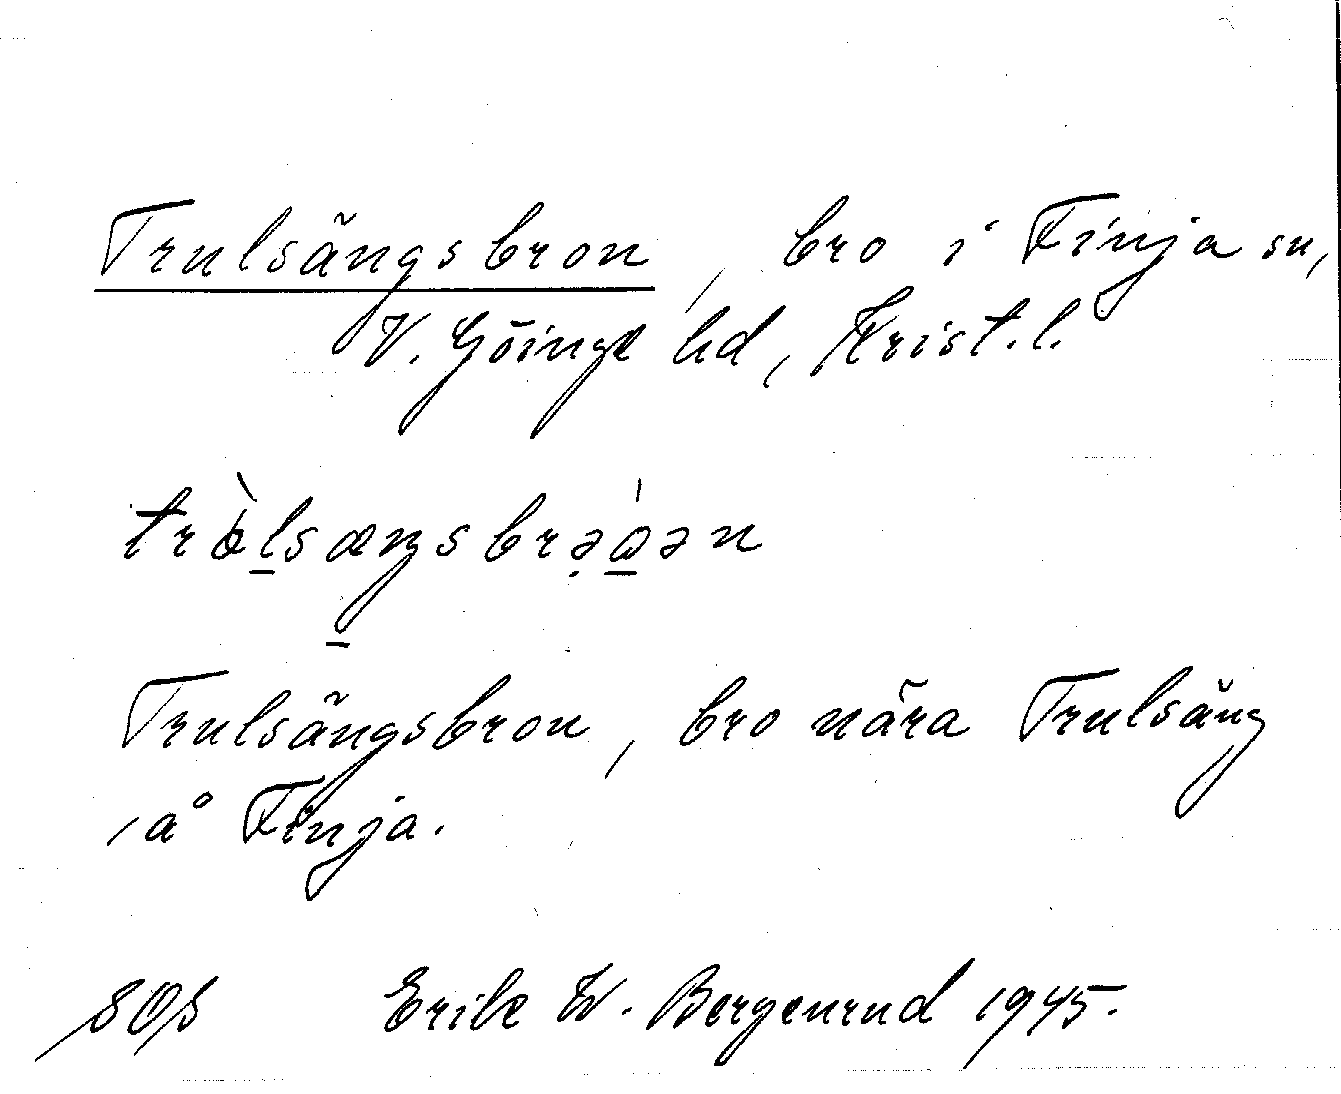 Trulsängsbron, bro i Finja sn,
V. Göinge hd, Krist. l.
Trulsängsbron, bro nära Trulsäng
, å Finja.
Erik W. Bergenrud 1945.